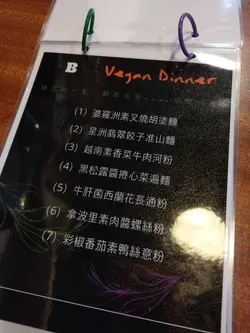 B Vegan Dinner
(1) 婆羅洲素叉燒胡塗麵
(2) 星洲翡翠餃子准山麵
(3) 越南素香菜牛肉河粉
(4) 黑松露醬捲心菜遍麵
(5) 牛肝菌西蘭花長通粉
(6) 拿波里素肉醬螺絲粉
(7) 彩椒番茄素鴨絲意粉